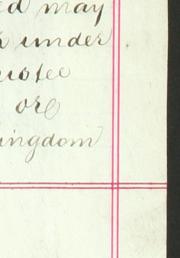 ed may
under
ustee
or
ingdom